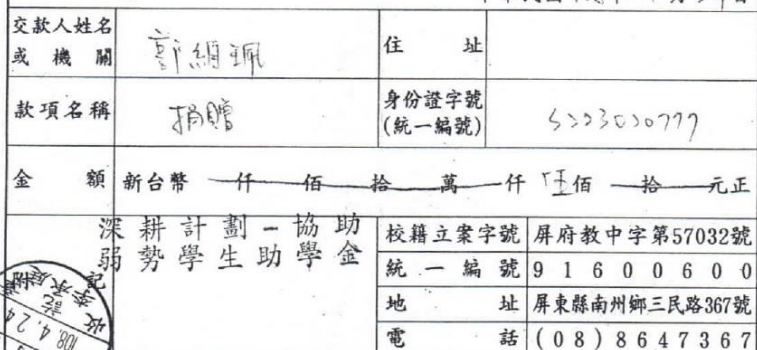 交款人姓名
或機關
郭網珮
住址
款項名稱
捐贈
身份證字號
(統一編號)
金額
新台幣 仟 佰 拾 萬 仟 伍佰 拾 元正
深耕計劃-協助
弱勢學生助學金
校籍立案字號
屏府教中字第57032號
統一編號
91600600
地址
屏東縣南州鄉三民路367號
電話
(08)8647367
108.4.24